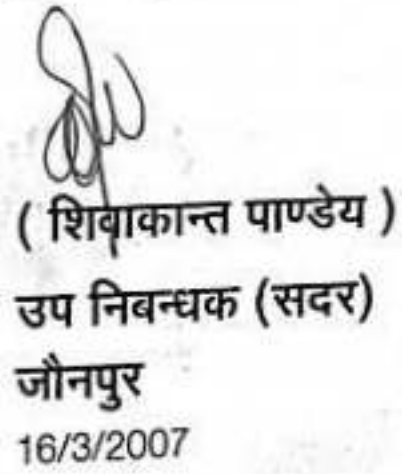 ( शिवाकान्त पाण्डेय )
उप निबन्धक (सदर)
जौनपुर
16/3/2007